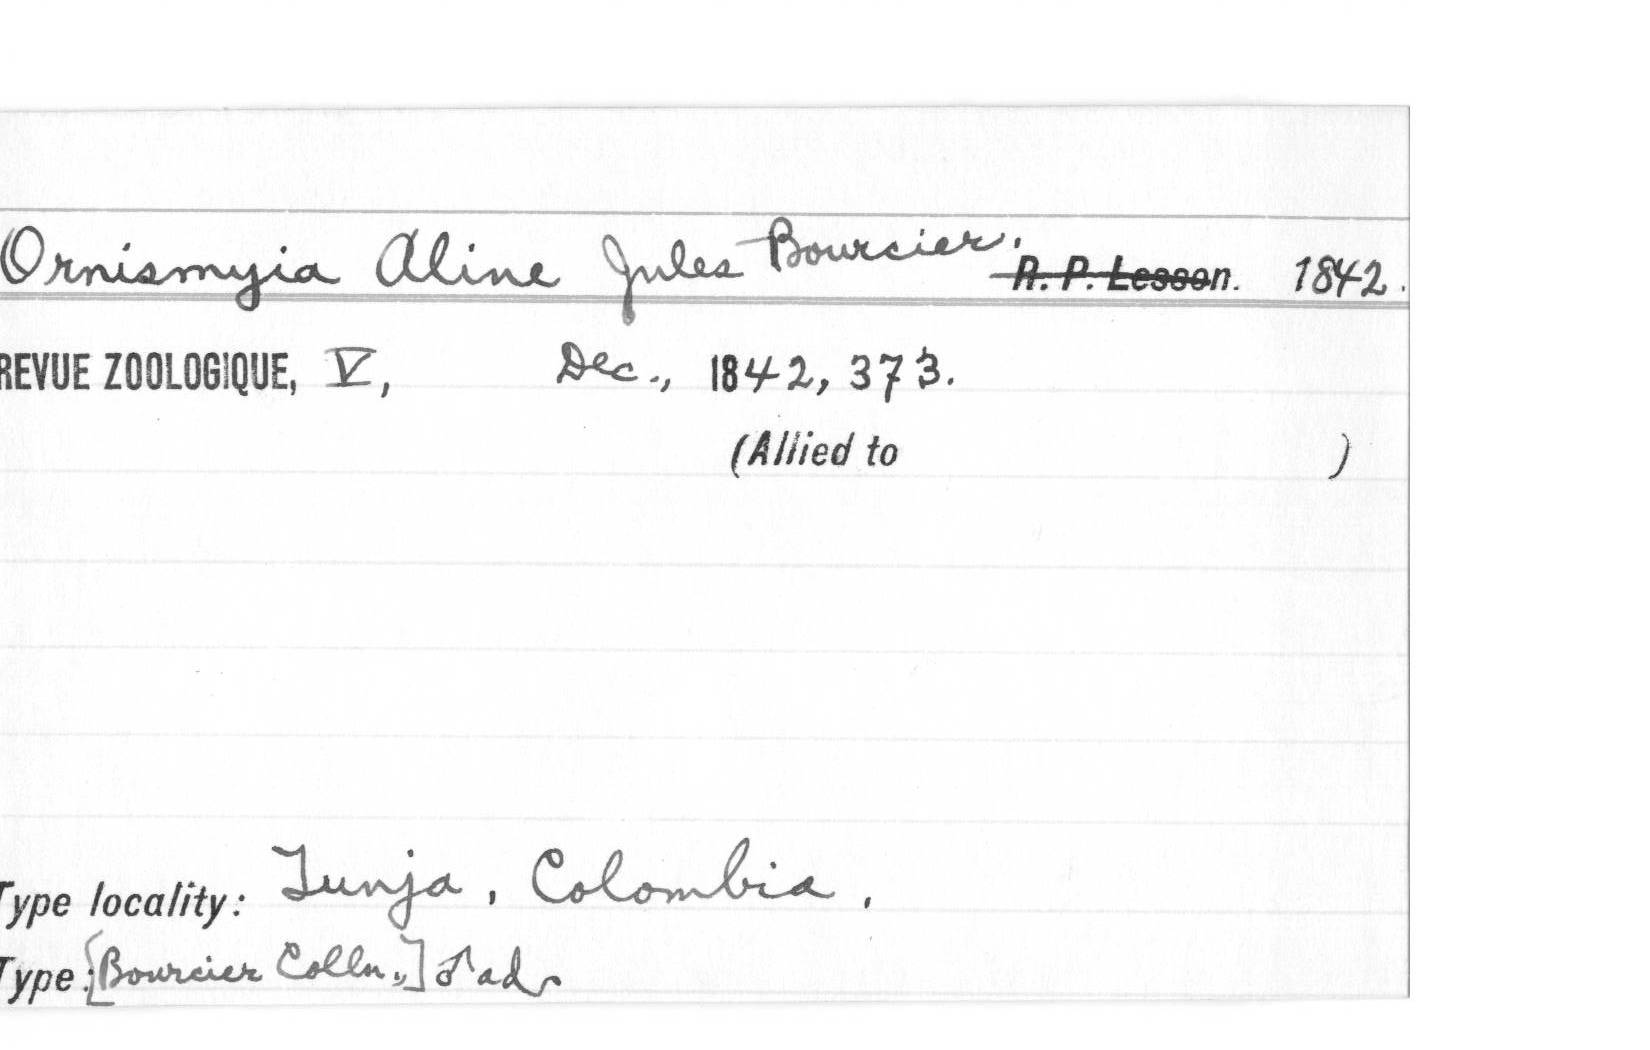 Ornismyia Aline Jules Bourcier. R. P. Lesson. 1842.
REVUE ZOOLOGIQUE, V, Dec., 1842, 373.
(Allied to )
Type locality: Tunja, Colombia.
Type: [Bourcier Colln.,] ♂ ad.